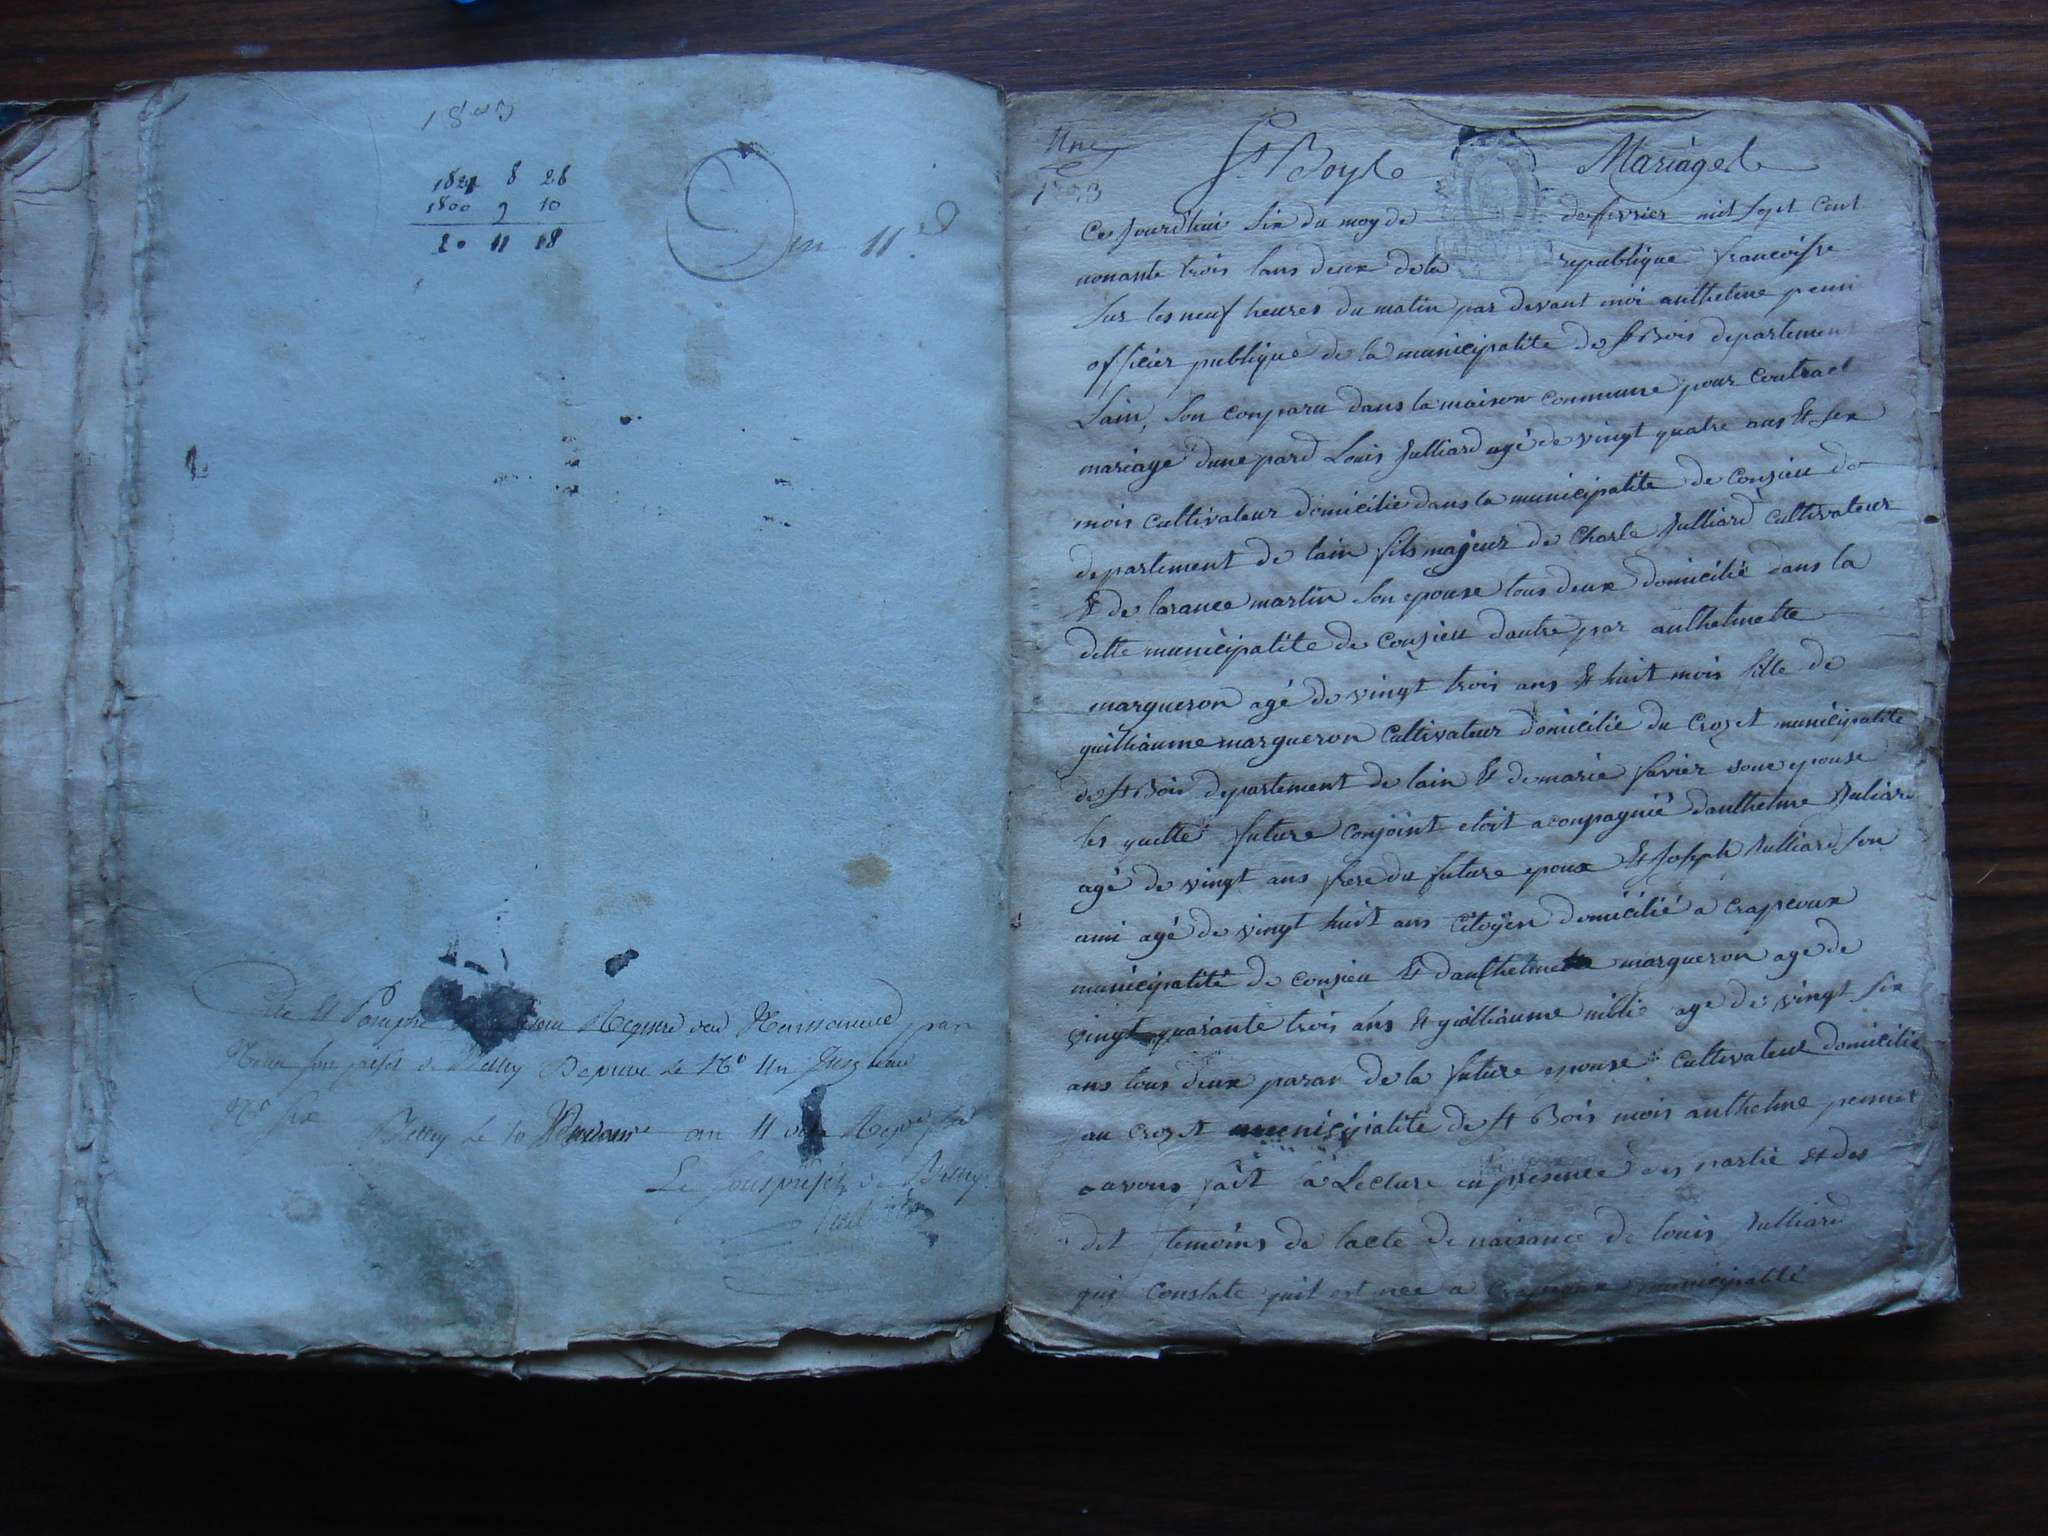 1803
1821 8 28
1800 9 10
20 11 18
an 11.e
Cotté et Paraphé Républicain par
Nous sous préfet de Belley Depuis le N.o un Jusq
N.o six
Belley le 10 an 11 de la
Le sous préfet de Belley
une
1793
St Boys Mariages
Ce jourd'hui six du moy de de fevrier mil sept cent
nonante trois lans deux de la republique francoisse
sur les neuf heures du matin par devant moi anthelme penin
officier publique de la municipalite de St Bois departement
Lain, son conparu dans la maison commune pour contract
mariage dune pard Louis Julliard agé de vingt quatre ans et six
mois cultivateur domicilie dans la municipalite de consieu de
departement de lain fils majeur de Charle Julliard cultivateur
et de larance martin son epouse tous deux domicilié dans la
ditte municipalité de consieu dautre par anthelmette
margueron agé de vingt trois ans et huit mois fille de
guilliaume margueron cultivateur domicilie du crozet municipalite
de St Bois departement de lain et de marie favier sone epouse
les quelle future conjoint etoit aconpagnié danthelme Juliard
agé de vingt ans frere du future epoux et Joseph Julliard son
ami agé de vingt huit ans citoÿen domicilié a crapeoux
municipalité de consieu et danthelme margueron age de
vingt quarante trois ans et guilliaume age de vingt six
ans tous deux paran de la future epouse cultivateur domicilie
au crozet municipialité de St Bois mois anthelme
avons fait a Lecture en presence des partie et des
dit temoins de lacte de naisance de louis Julliard
qui constate quil est nee a municipalité